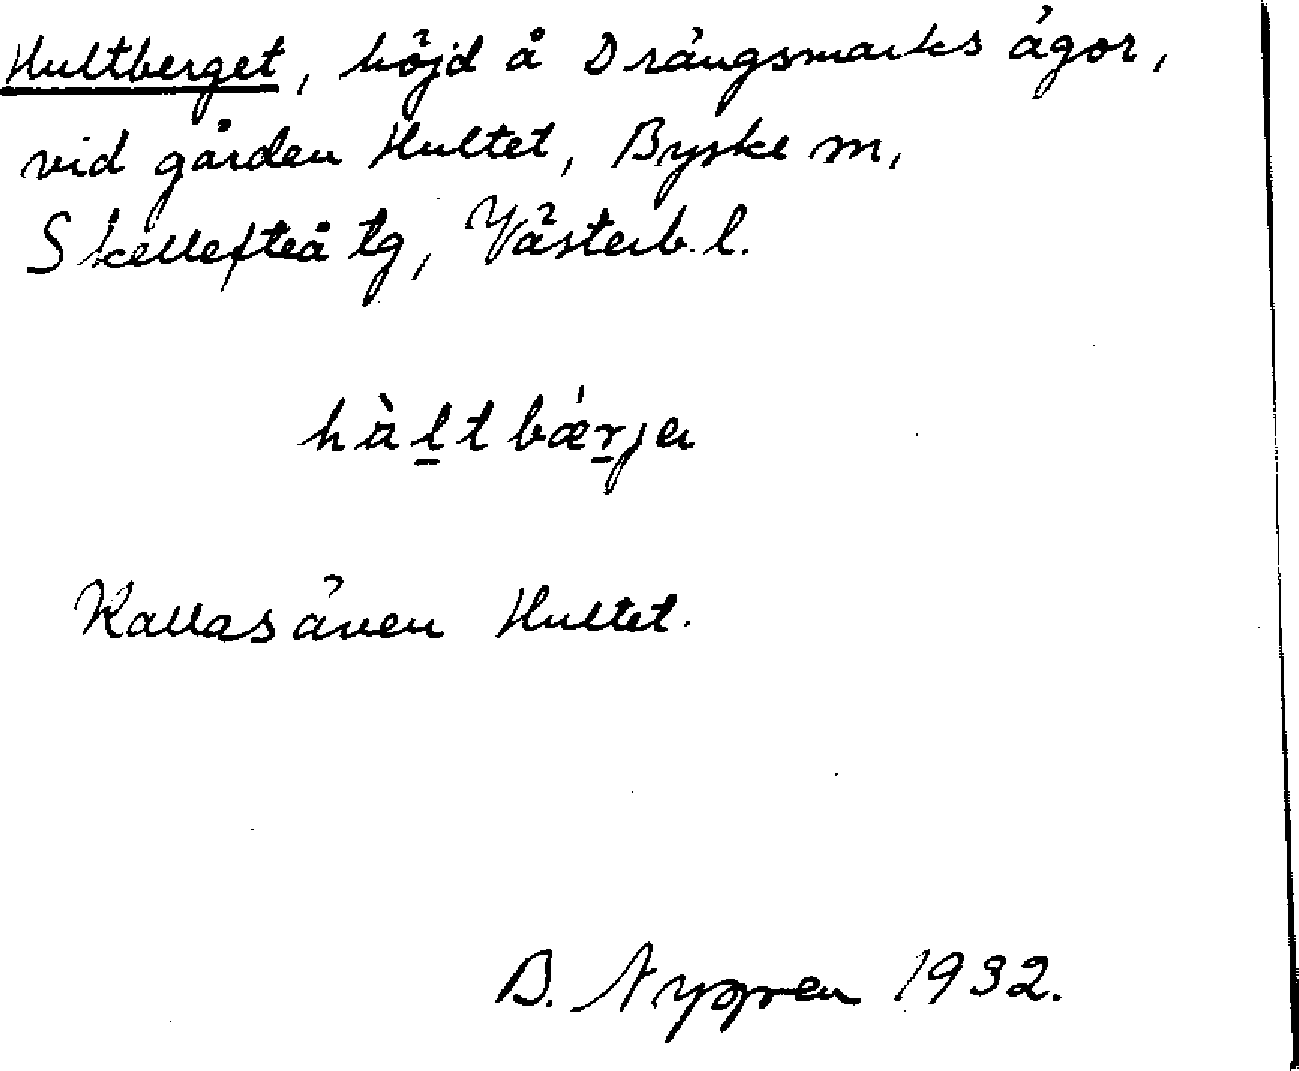 Hultberget, höjd å Drängsmarks ägor,
vid gården Hultet, Byske m,
Skellefteå tg, Västerb. l.
hàltbǽrja
Kallas även Hultet.
B. 1932.